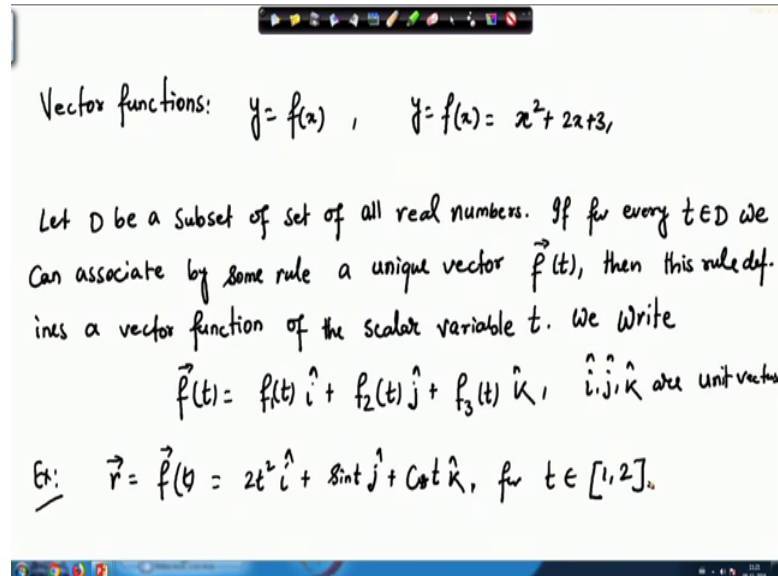 Vector functions: y = f(x) , y = f(x) = x² + 2x+3,
Let D be a subset of set of all real numbers. If for every t ∈ D we
Can associate by some rule a unique vector f⃗(t), then this rule def-
ines a vector function of the scalar variable t. We write
f⃗(t) = f₁(t) î + f₂(t) ĵ + f₃(t) k̂, î, ĵ, k̂ are unit vectors
Ex: r⃗ = f⃗(t) = 2t² î + Sint ĵ + Cost k̂, for t ∈ [1,2].
11:21